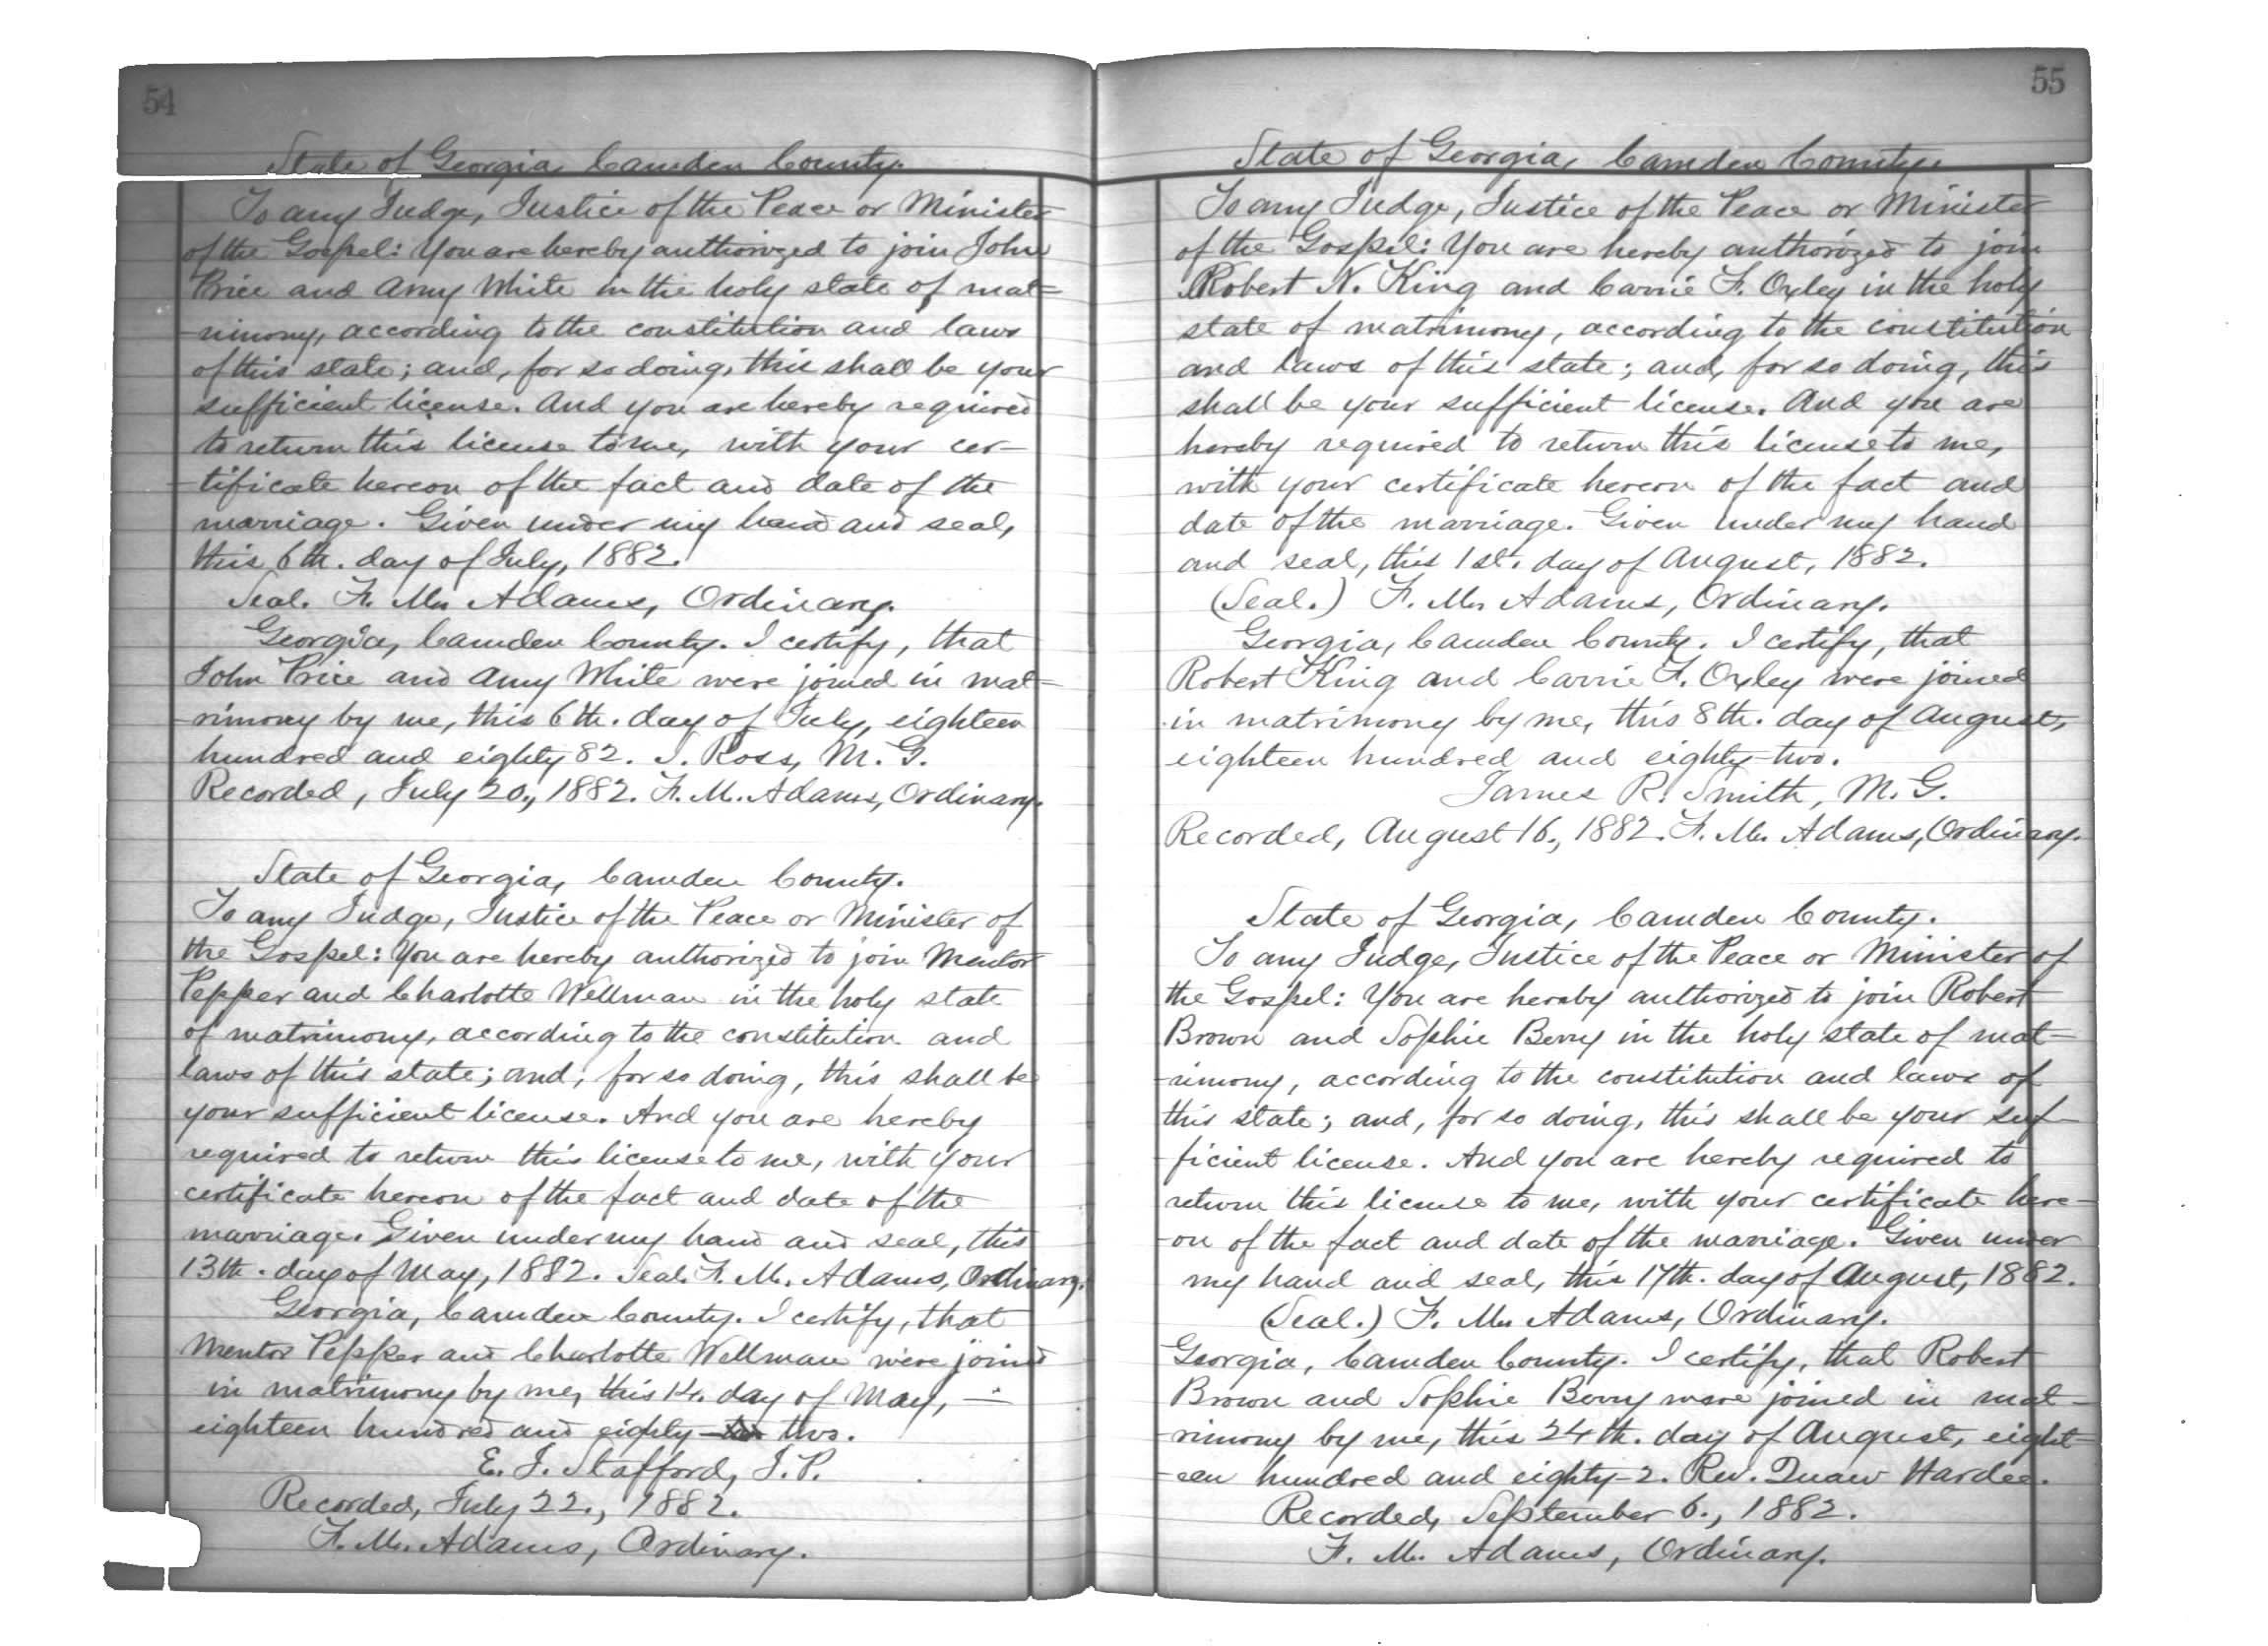 54
State of Georgia, Camden County.
To any Judge, Justice of the Peace or Minister
of the Gospel: You are hereby authorized to join John
Price and Amy White in the holy state of mat=
rimony, according to the constitution and laws
of this state; and, for so doing, this shall be your
sufficient license. And you are hereby required
to return this license to me, with your cer-
tificate hereon of the fact and date of the
marriage. Given under my hand and seal,
this 6th. day of July, 1882.
Seal. F. M. Adams, Ordinary.
Georgia, Camden County. I certify, that
John Price and Amy White were joined in mat=
rimony by me, this 6th. day of July, eighteen
hundred and eighty 82. J. Ross, M. G.
Recorded, July 20., 1882. F. M. Adams, Ordinary.
State of Georgia, Camden County.
To any Judge, Justice of the Peace or Minister of
the Gospel: You are hereby authorized to join Mentor
Pepper and Charlotte Wellman in the holy state
of matrimony, according to the constitution and
laws of this state; and, for so doing, this shall be
your sufficient license. And you are hereby
required to return this license to me, with your
certificate hereon of the fact and date of the
marriage. Given under my hand and seal, this
13th. day of May, 1882. Seal. F. M. Adams, Ordinary.
Georgia, Camden County. I certify, that
Mentor Pepper and Charlotte Wellman were joined
in matrimony by me, this 14. day of May, —
eighteen hundred and eighty-two.
E. J. Stafford, J. P.
Recorded, July 22., 1882.
F. M. Adams, Ordinary.
55
State of Georgia, Camden County.
To any Judge, Justice of the Peace or Minister
of the Gospel: You are hereby authorized to join
Robert N. King and Carrie F. Oxley in the holy
state of matrimony, according to the constitution
and laws of this state; and, for so doing, this
shall be your sufficient license. And you are
hereby required to return this license to me,
with your certificate hereon of the fact and
date of the marriage. Given under my hand
and seal, this 1st. day of August, 1882.
(Seal.) F. M. Adams, Ordinary.
Georgia, Camden County. I certify, that
Robert King and Carrie F. Oxley were joined
in matrimony by me, this 8th. day of August,
eighteen hundred and eighty-two.
James R. Smith, M. G.
Recorded, August 16., 1882. F. M. Adams, Ordinary.
State of Georgia, Camden County.
To any Judge, Justice of the Peace or Minister of
the Gospel: You are hereby authorized to join Robert
Brown and Sophie Berry in the holy state of mat-
rimony, according to the constitution and laws of
this state; and, for so doing, this shall be your suf-
ficient license. And you are hereby required to
return this license to me, with your certificate here-
on of the fact and date of the marriage. Given under
my hand and seal, this 17th. day of August, 1882.
(Seal.) F. M. Adams, Ordinary.
Georgia, Camden County. I certify, that Robert
Brown and Sophie Berry were joined in mat-
rimony by me, this 24th. day of August, eight=
een hundred and eighty-2. Rev. Hardee.
Recorded, September 6., 1882.
F. M. Adams, Ordinary.